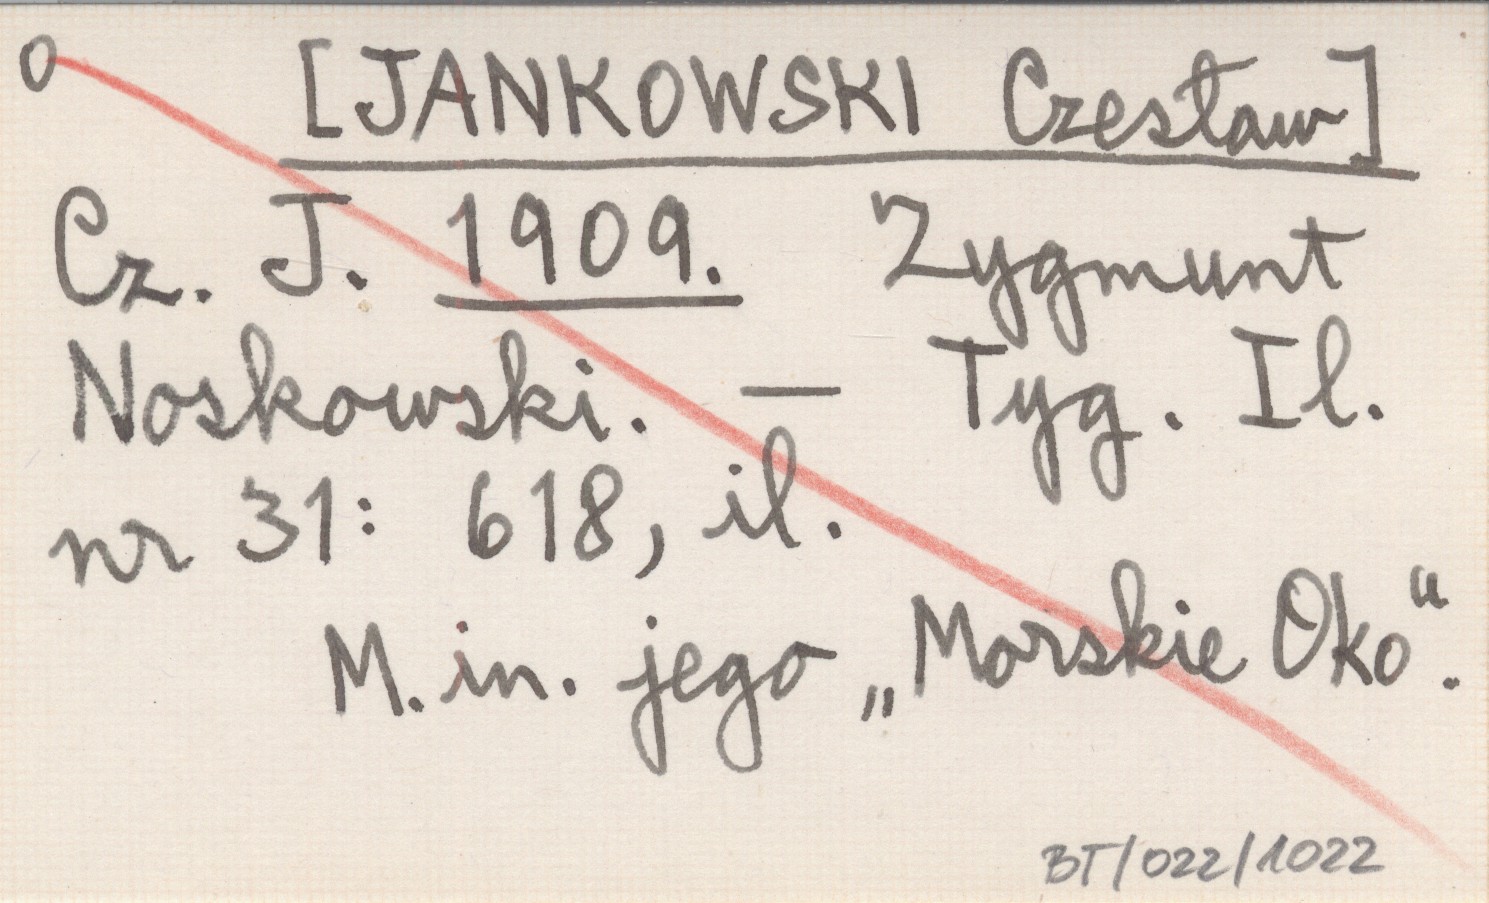 O [JANKOWSKI Czesław]
Cz. J. 1909. Zygmunt
Noskowski. — Tyg. Il.
nr 31: 618, il.
M. in. jego „Morskie Oko“.
BT/022/1022